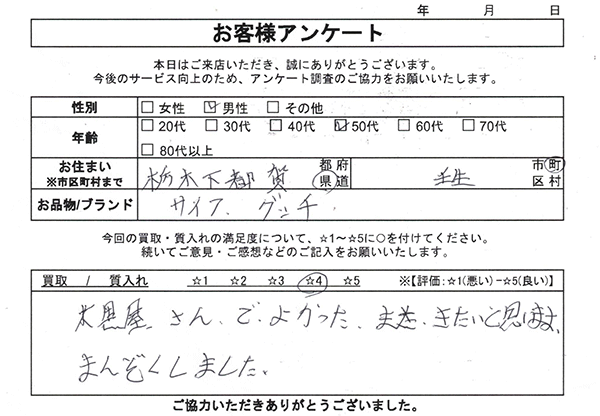 年 月 日
お客様アンケート
本日はご来店いただき、誠にありがとうございます。
今後のサービス向上のため、アンケート調査のご協力をお願いいたします。
性別 □ 女性 ☑ 男性 □ その他
年齢 □ 20代 □ 30代 □ 40代 ☑ 50代 □ 60代 □ 70代
□ 80代以上
お住まい
※市区町村まで
栃木下都賀
都府
県道
壬生
市町
区村
お品物/ブランド サイフ グッチ
今回の買取・質入れの満足度について、☆1～☆5に○を付けてください。
続いてご意見・ご感想などのご記入をお願いいたします。
買取 / 質入れ ☆1 ☆2 ☆3 ☆4 ☆5 ※【評価:☆1(悪い)-☆5(良い)】
大黒屋 さん、で、よかった、また、きたいと思います、
まんぞくしました、
ご協力いただきありがとうございました。